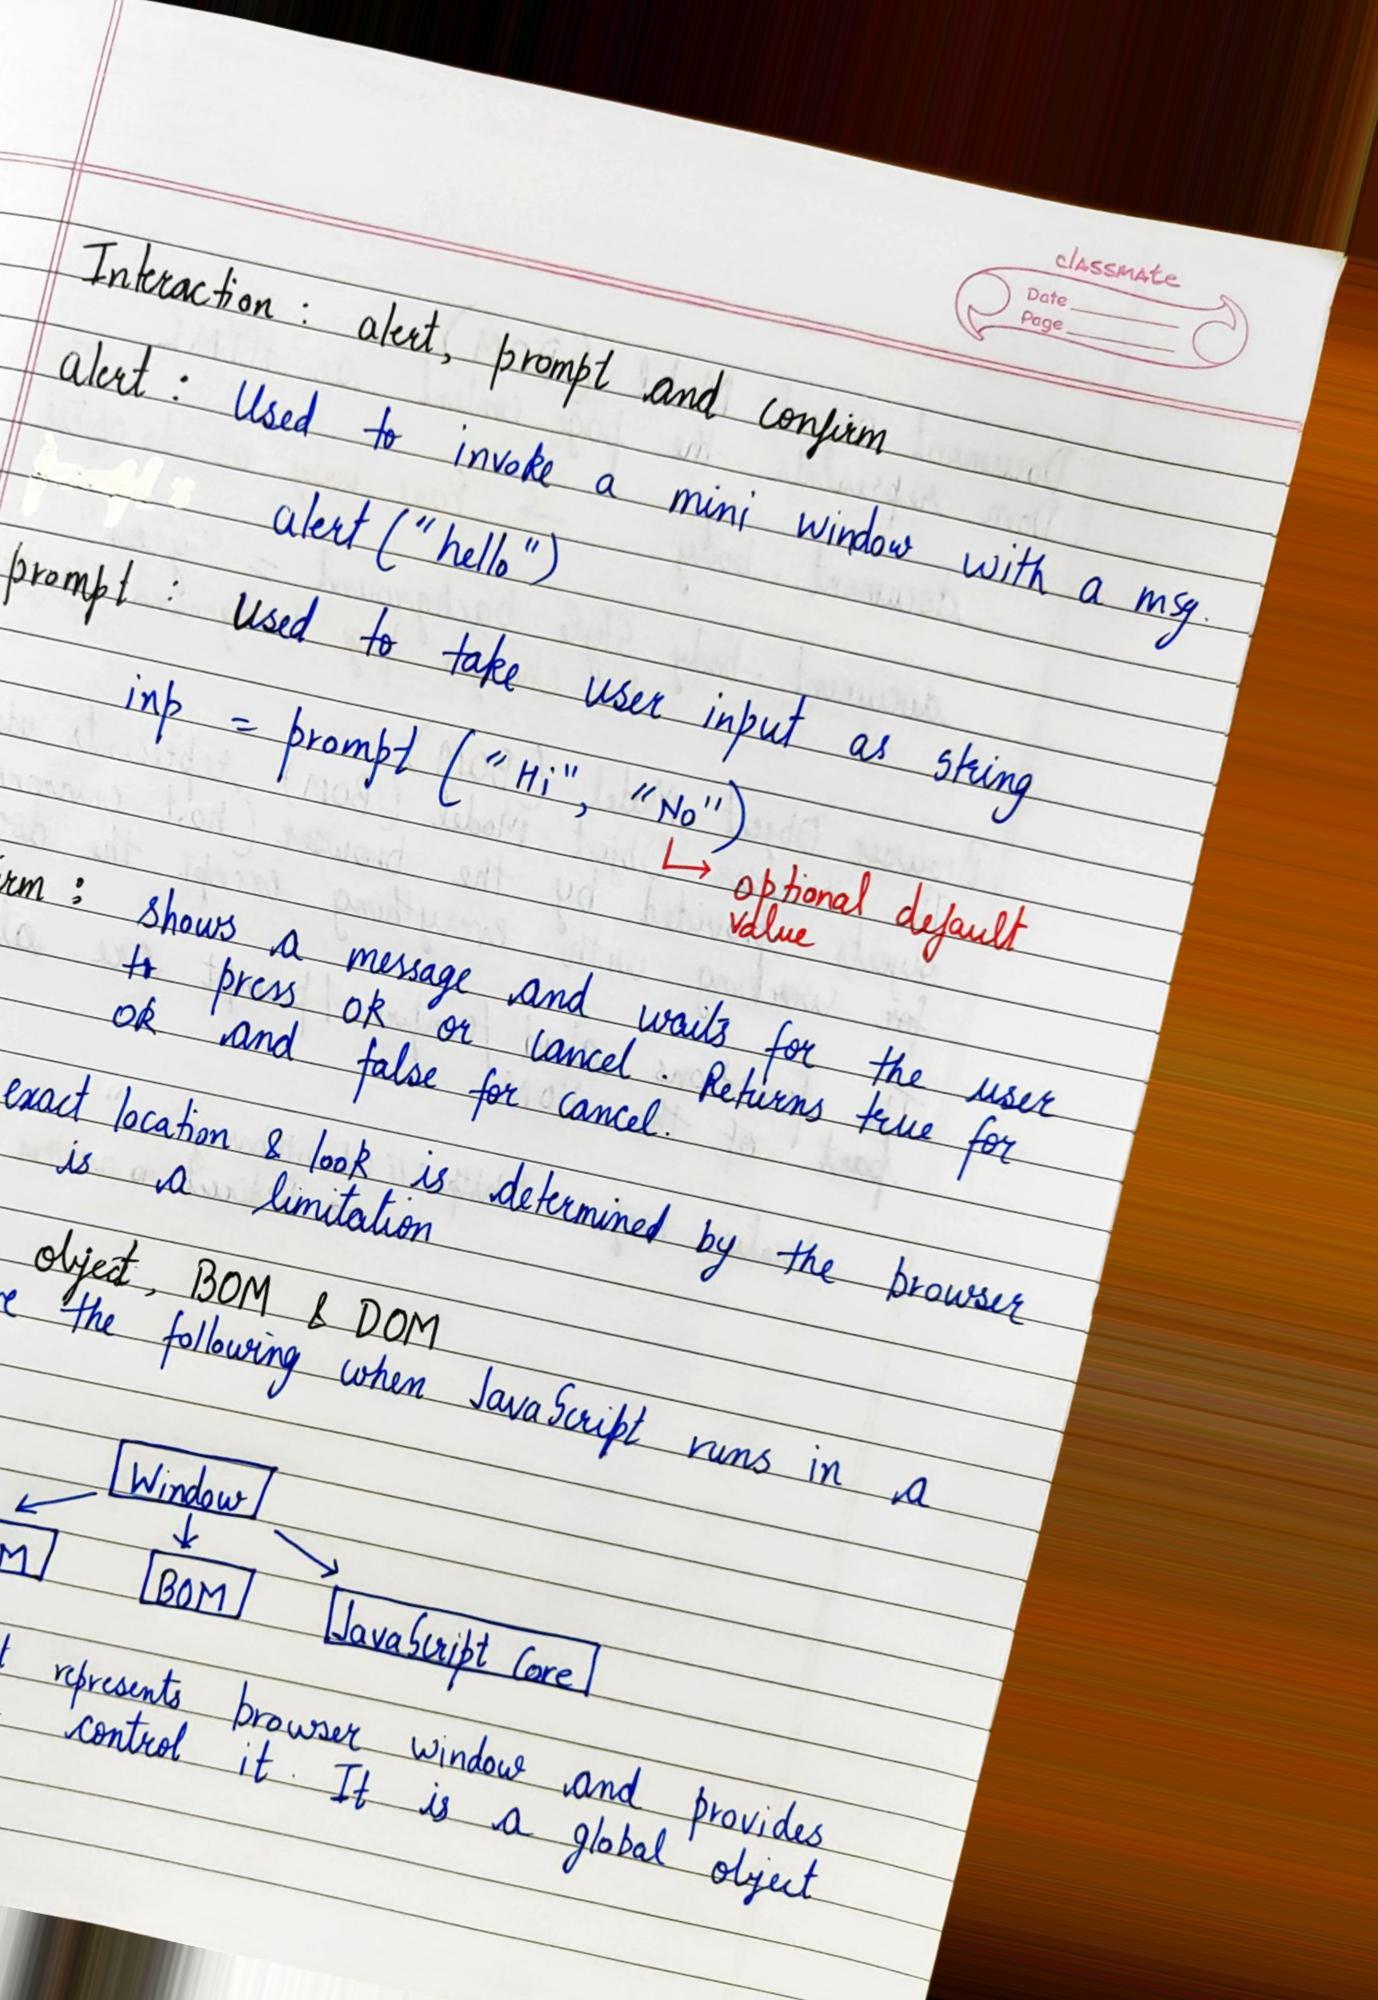 classmate
Date
Page
Interaction : alert, prompt and confirm
alert : Used to invoke a mini window with a msg.
alert ("hello")
prompt : Used to take user input as string
inp = prompt ("Hi", "No")
↳ optional default
value
rm : shows a message and waits for the user
to press ok or cancel. Returns true for
ok and false for cancel.
exact location & look is determined by the browser
is a limitation
object, BOM & DOM
the following when JavaScript runs in a
Window
M
BOM
JavaScript Core
represents browser window and provides
control it. It is a global object